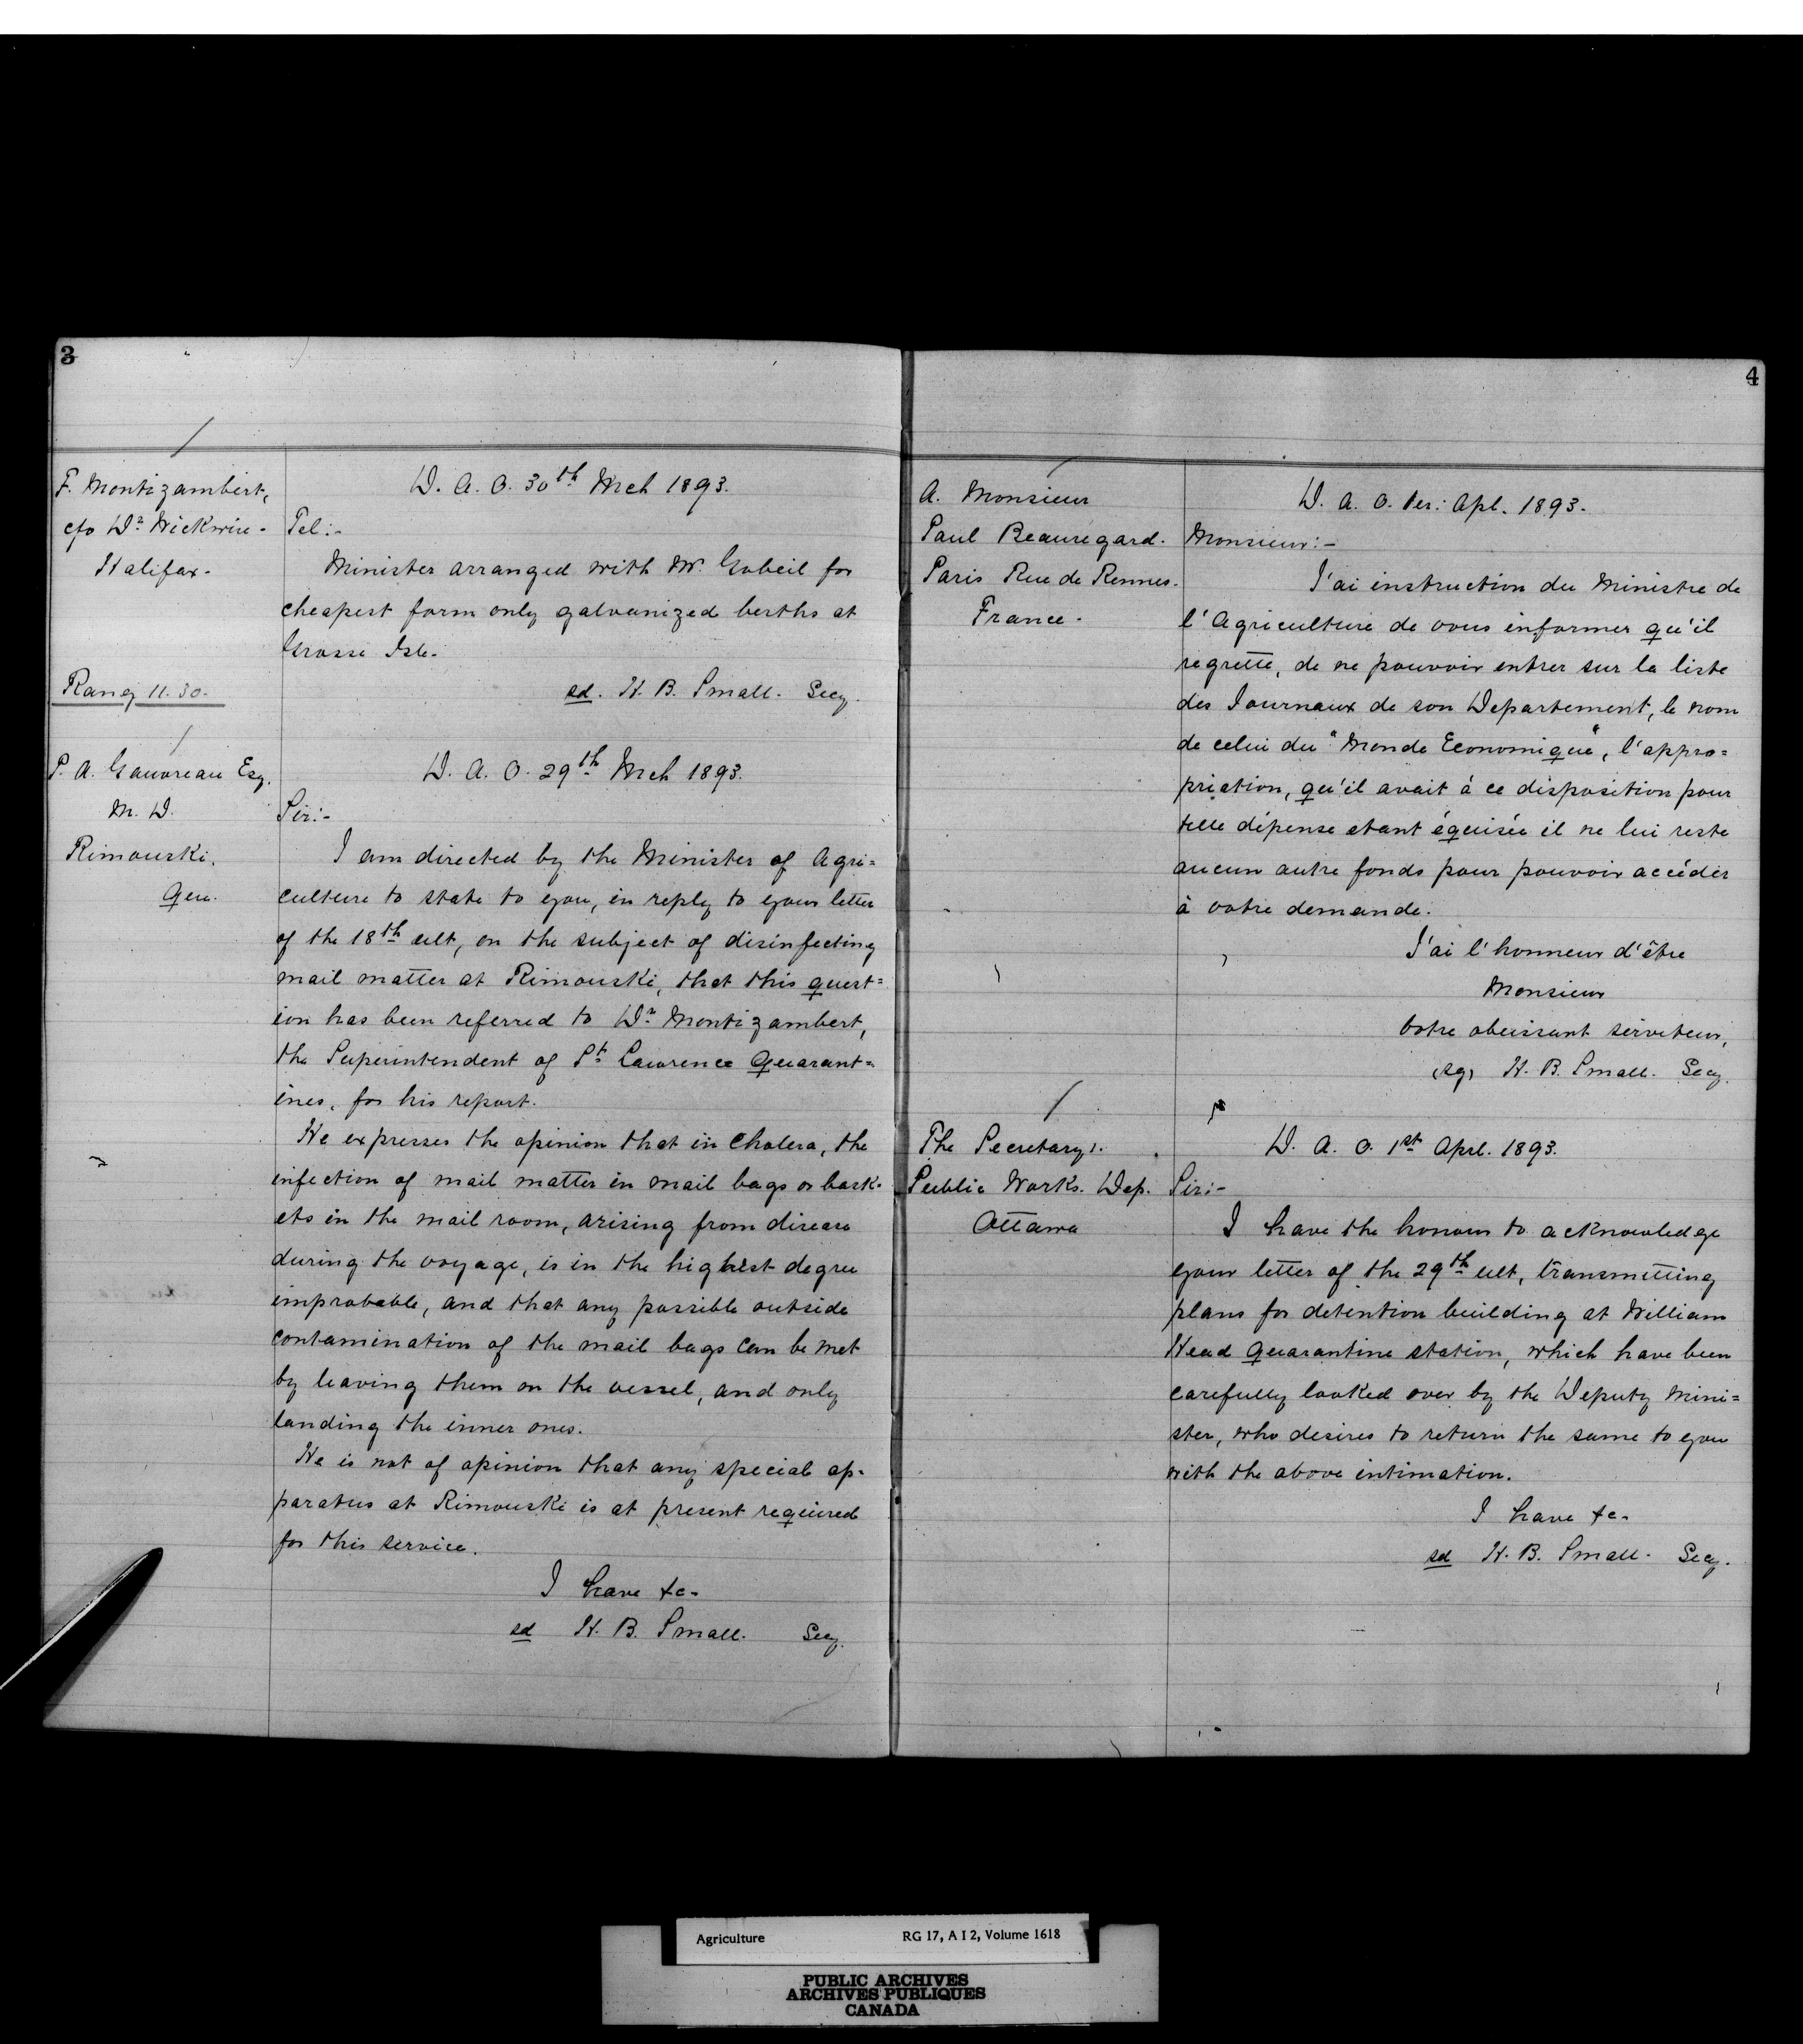 3
F. Montizambert,
c/o Dr Wickwire -
Halifax -
D. A. O. 30th Mch 1893.
Tel:-
Minister arranged with Mr. Gobeil for
cheapest form only galvanized berths at
Grosse Isle.
Rang 11.30.
sd. H. B. Small. Secy.
P. A. Gauvreau Esq.
M. D.
Rimouski,
Que.
D. A. O. 29th Mch 1893.
Sir:-
I am directed by the Minister of Agri=
culture to state to you, in reply to your letter
of the 18th ult, on the subject of disinfecting
mail matter at Rimouski, that this quest=
ion has been referred to Dr Montizambert,
the Superintendent of St Lawrence Quarant=
ines, for his report.
He expresses the opinion that in Cholera, the
infection of mail matter in mail bags or bask-
ets in the mail room, arising from disease
during the voyage, is in the highest degree
improbable, and that any possible outside
contamination of the mail bags can be met
by leaving them on the vessel, and only
landing the inner ones.
He is not of opinion that any special ap-
paratus at Rimouski is at present required
for this service.
I have &c-
sd H. B. Small. Secy.
4
A. Monsieur
Paul Beauregard.
Paris Rue de Rennes.
France -
D. A. O. 1er: Apl. 1893.
Monsieur:-
J'ai instruction du Ministre de
l'Agriculture de vous informer qu'il
regrette, de ne pouvoir entrer sur la liste
des Journaux de son Departement, le nom
de celui du "Monde Economique", l'appro=
priation, qu'il avait à ce disposition pour
telle dépense etant équisée il ne lui reste
aucun autre fonds pour pouvoir accéder
à votre demande.
J'ai l'honneur d'être
Monsieur
Votre obeissant serviteur,
(sg) H. B. Small. Secy.
The Secretary.
Public Works. Dep.
Ottawa
D. A. O. 1st Apl. 1893.
Sir:-
I have the honour to acknowledge
your letter of the 29th ult, transmitting
plans for detention building at William
Head Quarantine station, which have been
carefully looked over by the Deputy Mini=
ster, who desires to return the same to you
with the above intimation.
I have &c-
sd H. B. Small. Secy.
Agriculture RG 17, A I 2, Volume 1618
PUBLIC ARCHIVES
ARCHIVES PUBLIQUES
CANADA